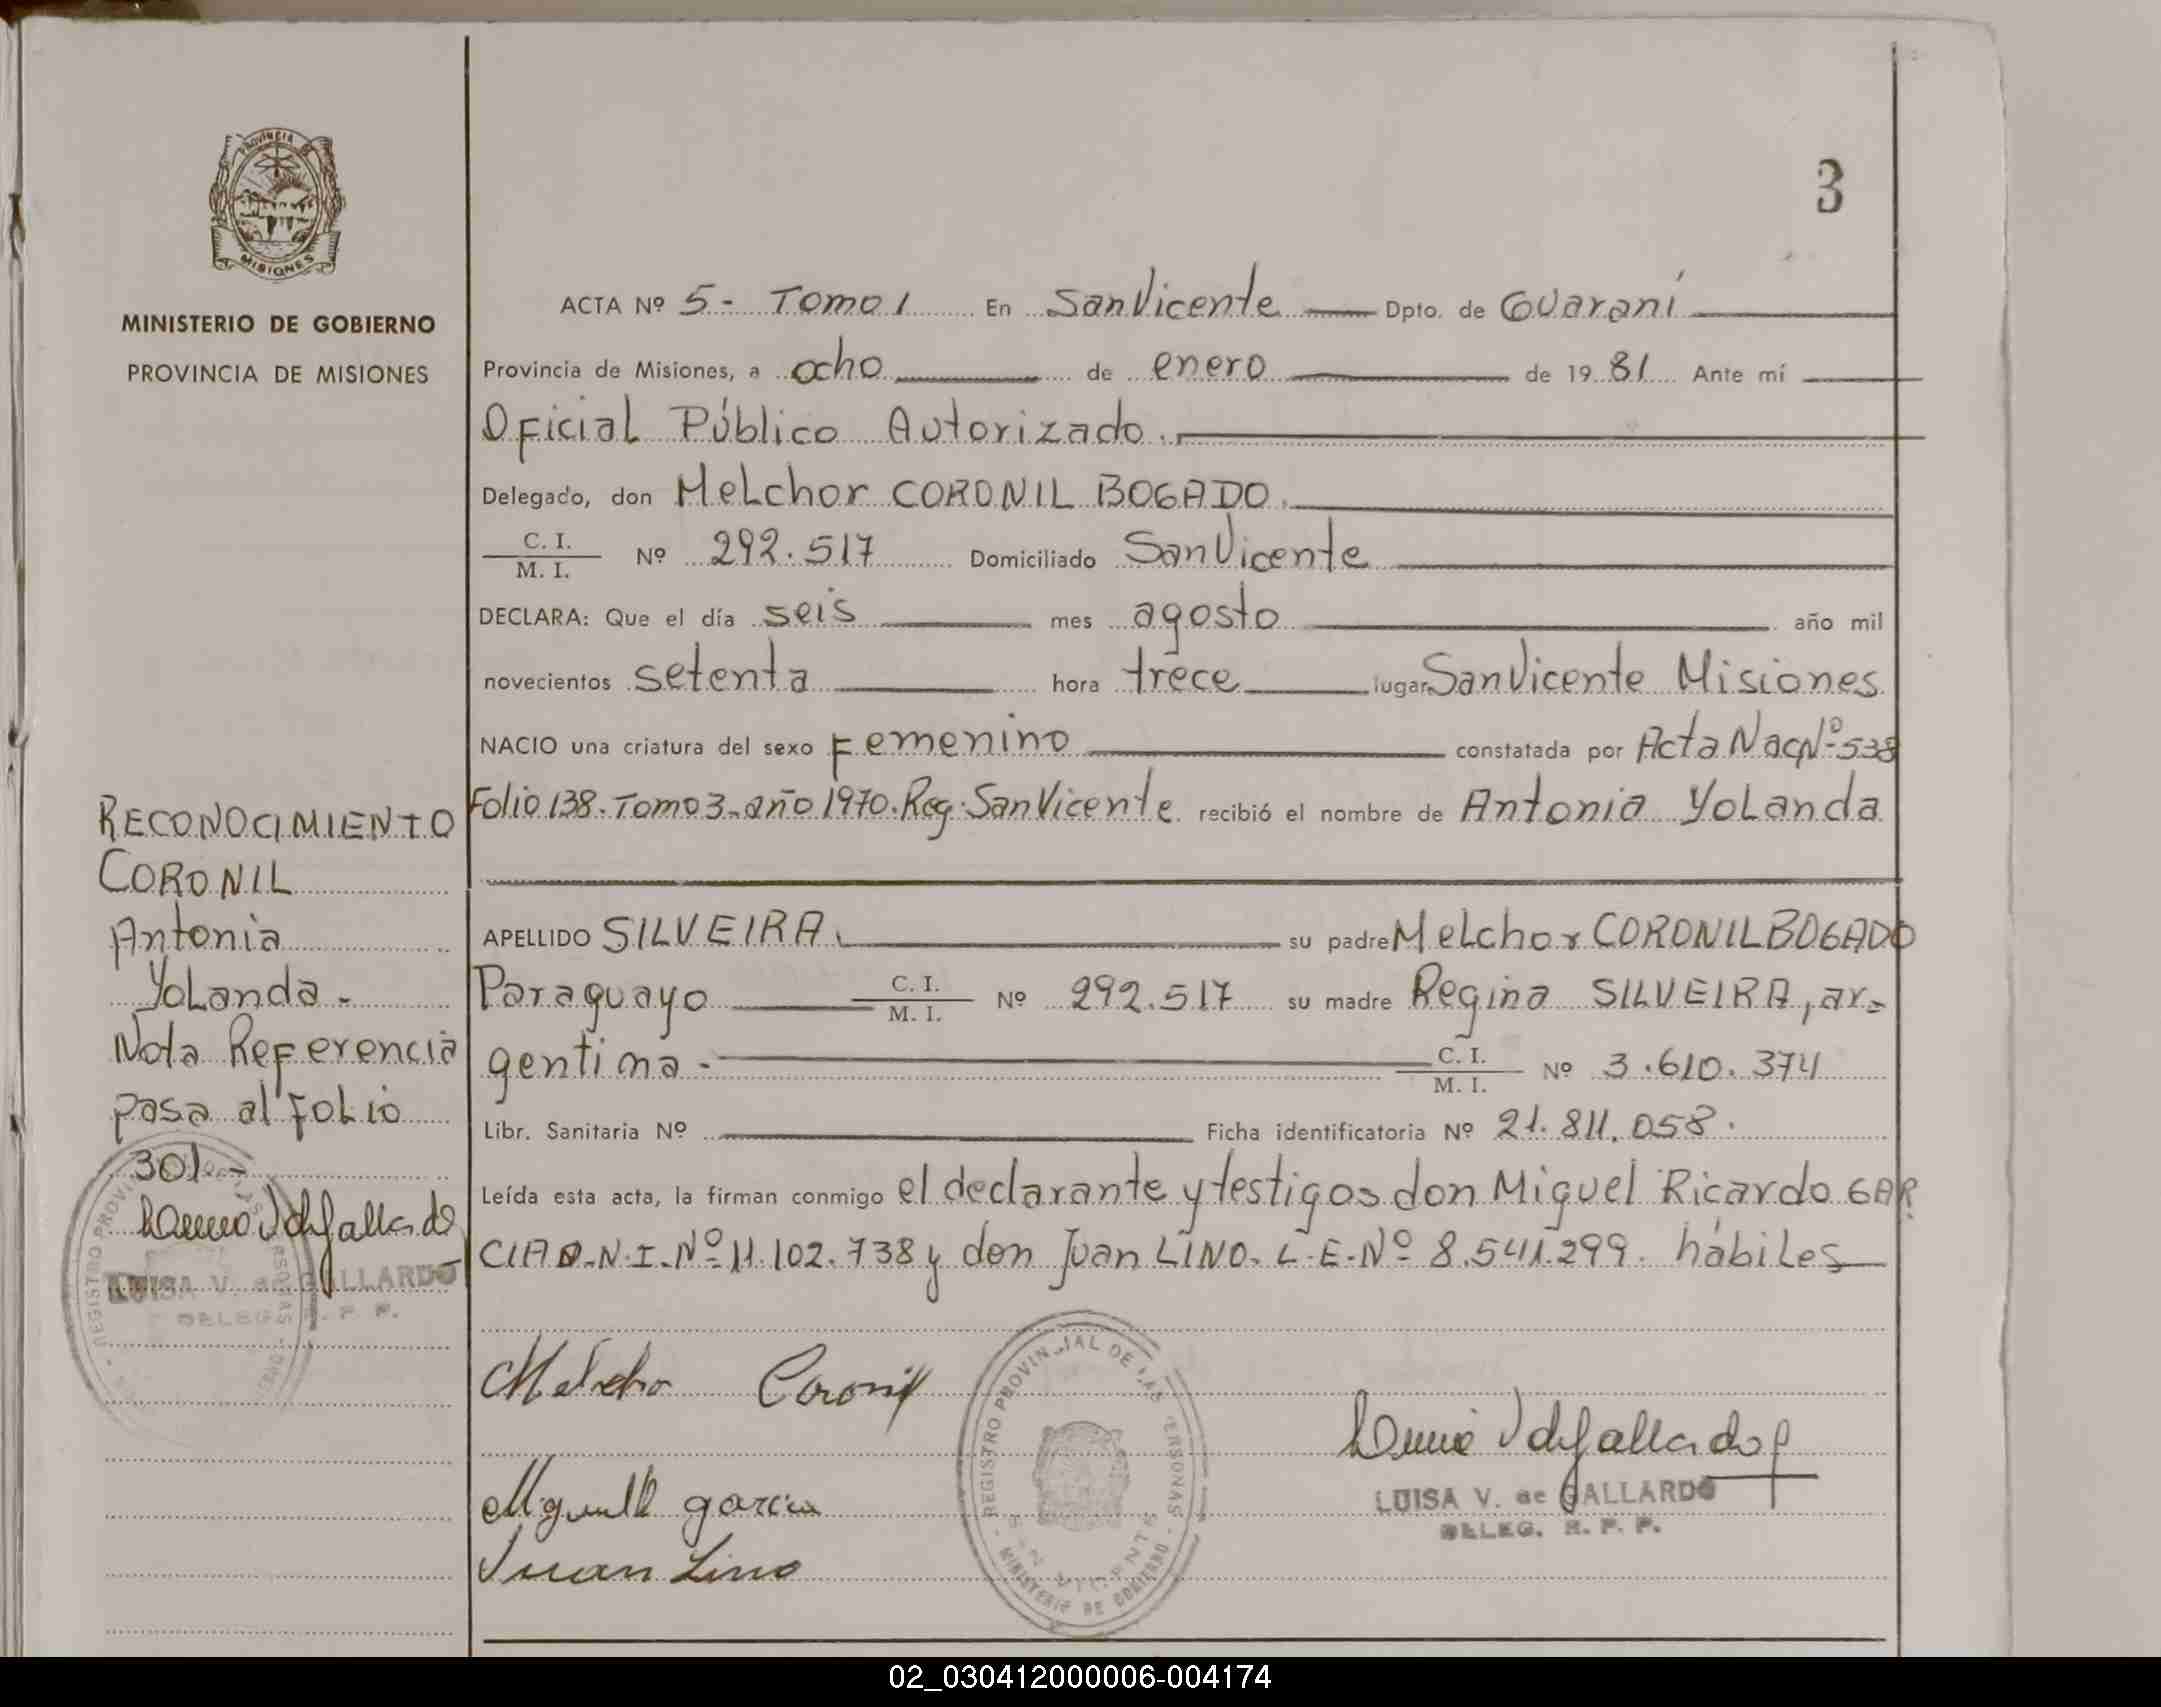 3
PROVINCIA
MISIONES
MINISTERIO DE GOBIERNO
PROVINCIA DE MISIONES
ACTA Nº 5- Tomo 1 En San Vicente Dpto. de Guaraní
Provincia de Misiones, a ocho de enero de 1981 Ante mí
Oficial Público Autorizado.
Delegado, don Melchor CORONIL BOGADO.
C. I.
M. I. Nº 292.517 Domiciliado San Vicente
DECLARA: Que el día seis mes agosto año mil
novecientos setenta hora trece lugar San Vicente Misiones
NACIO una criatura del sexo Femenino constatada por Acta Nac Nº 538
Folio 138. Tomo 3. año 1970. Reg. San Vicente recibió el nombre de Antonia Yolanda
APELLIDO SILVEIRA. su padre Melchor CORONIL BOGADO
Paraguayo C. I.
M. I. Nº 292.517 su madre Regina SILVEIRA, ar-
gentina - C. I.
M. I. Nº 3.610.374
Libr. Sanitaria Nº Ficha identificatoria Nº 21.811.058.
Leída esta acta, la firman conmigo el declarante y testigos don Miguel Ricardo GAR
CIA D.N.I. Nº 11.102.738 y don Juan LINO. L.E. Nº 8.541.299. hábiles
RECONOCIMIENTO
CORONIL
Antonia
Yolanda.-
Nota Referencia
pasa al Folio
301-
LUISA V. de GALLARDO
DELEG. R. P. P.
Melchor Coronil
Miguel R garcia
Juan Lino
REGISTRO PROVINCIAL DE LAS PERSONAS
SAN VICENTE
MINISTERIO DE GOBIERNO
LUISA V. de GALLARDO
DELEG. R. P. P.
02_030412000006-004174